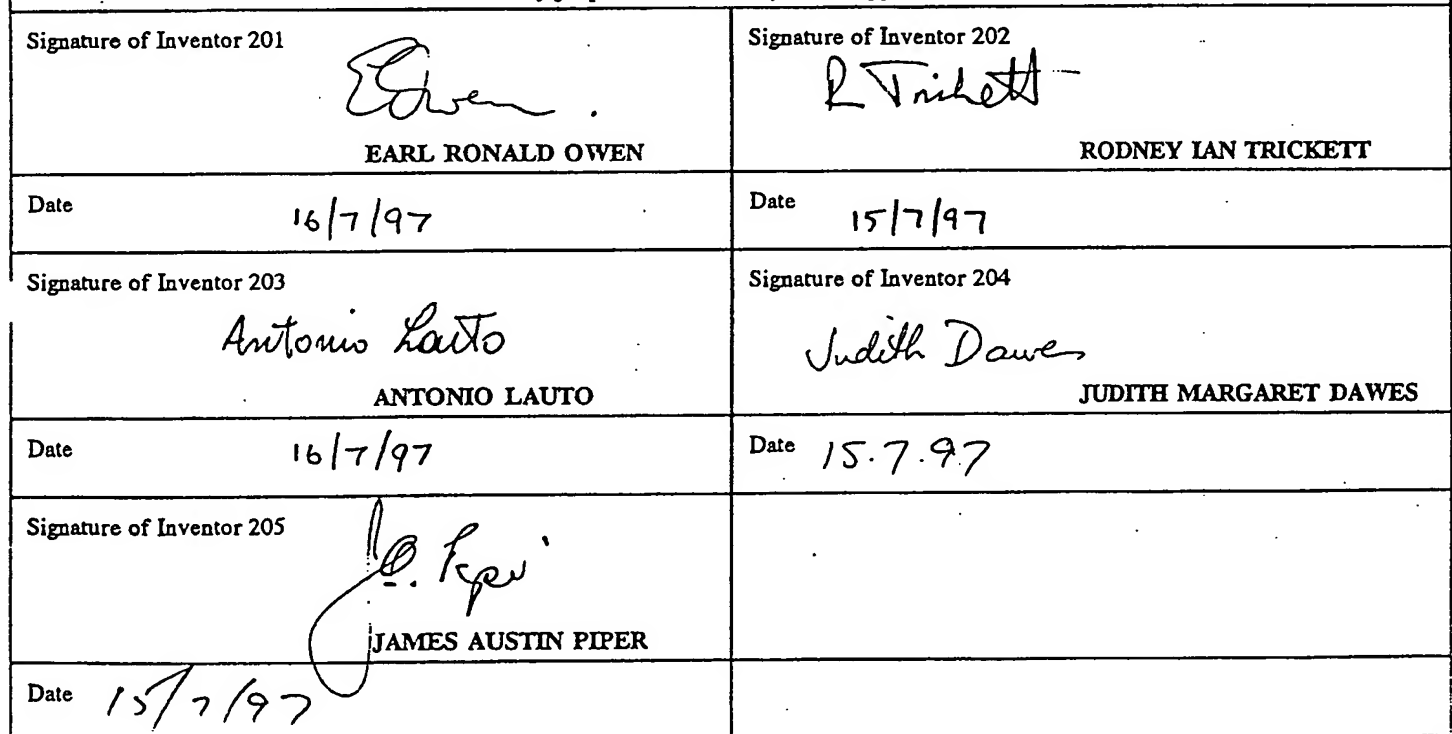 Signature of Inventor 201
EOwen.
EARL RONALD OWEN
Date 16/7/97
Signature of Inventor 202
R Trickett
RODNEY IAN TRICKETT
Date 15/7/97
Signature of Inventor 203
Antonio Lauto
ANTONIO LAUTO
Date 16/7/97
Signature of Inventor 204
Judith Dawes
JUDITH MARGARET DAWES
Date 15.7.97
Signature of Inventor 205
JAMES AUSTIN PIPER
Date 15/7/97